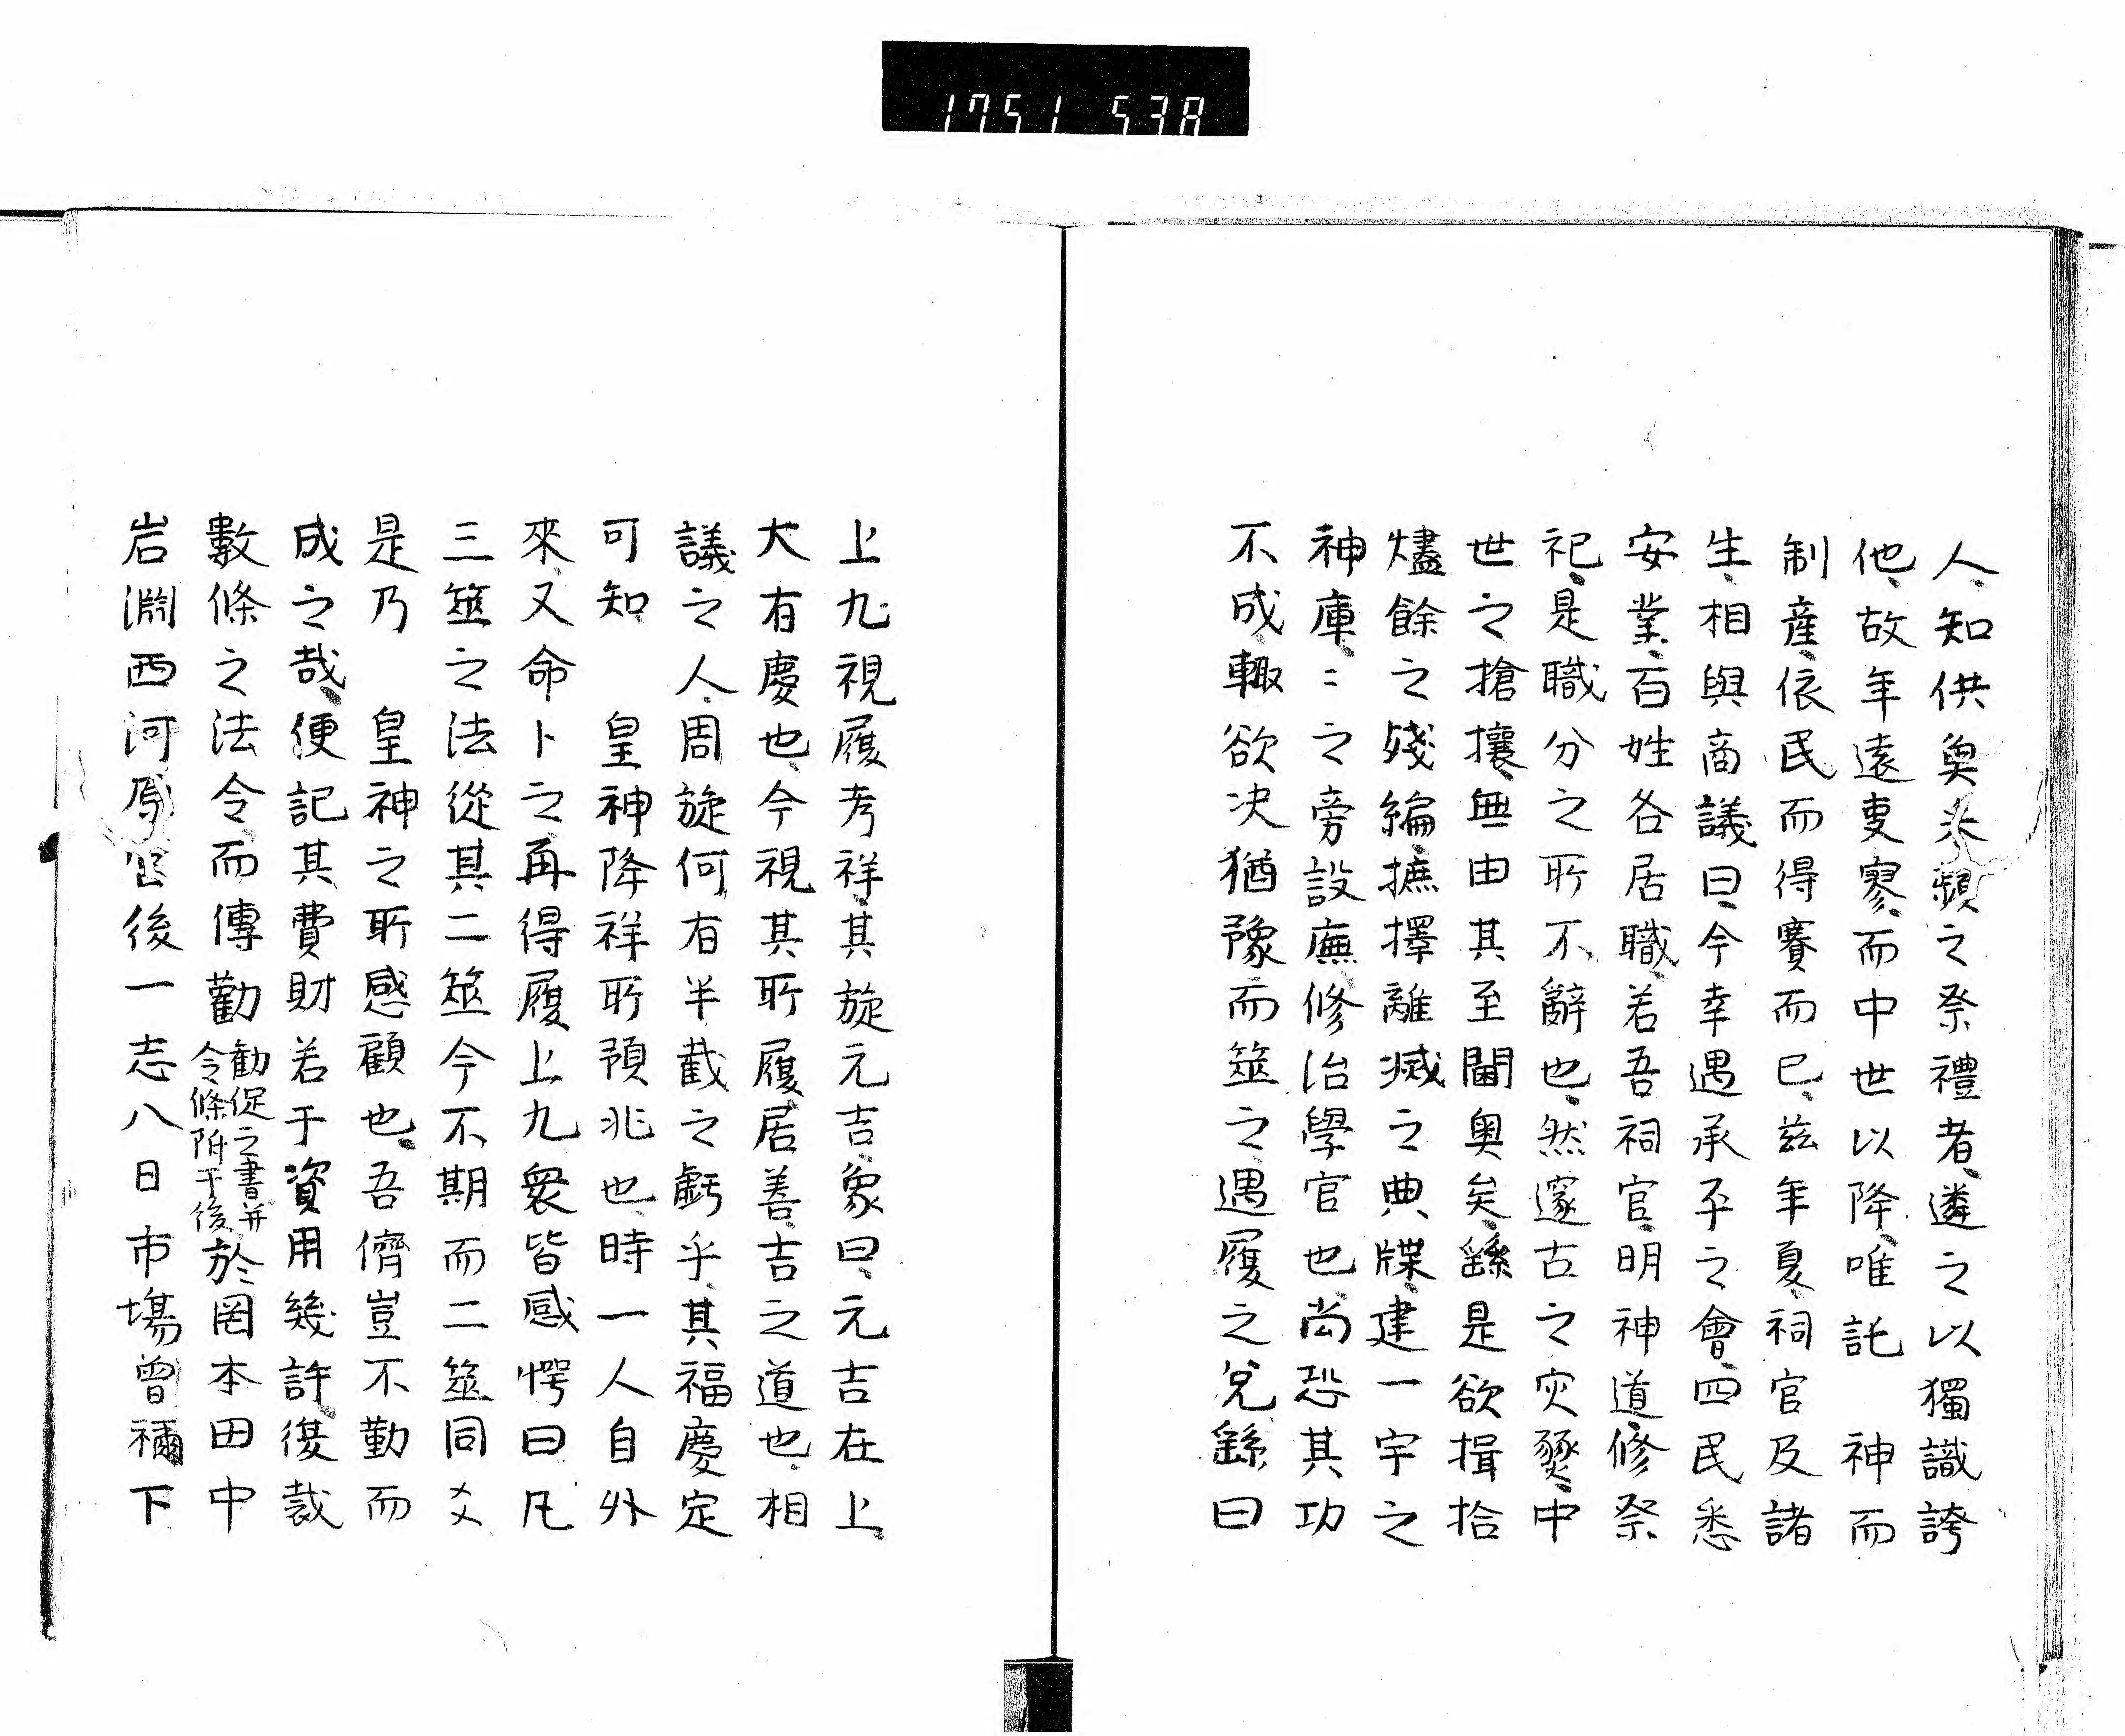 1751 538
人、知供奥米頻之祭禮者、遴之以獨識誇
他、故年遠吏寥、而中世以降、唯託　神而
制産、依民而得賽而已、茲年夏、祠官及諸
生、相與商議曰、今幸遇承平之會、四民悉
安業、百姓各居職、若吾祠官、明神道修祭
祀、是職分之所不辭也、然邃古之灾燹、中
世之搶攘、無由其至閫奥矣、繇是欲揖拾
燼餘之殘編、摭擇離滅之典牒、建一宇之
神庫、〻之旁設廡、修治學官也、尚恐其功
不成、輙欲决猶豫而筮之、遇履之兌、繇曰
上九視履考祥、其旋元吉、象曰、元吉在上、
大有慶也、今視其所履、居善、吉之道也、相
議之人、周旋何有半截之虧乎、其福慶定
可知、　皇神降祥所預兆也、時一人自外
來、又命卜之、再得履上九、衆皆感愕曰、凡
三筮之法從其二筮、今不期而二筮同爻
是乃　皇神之所感顧也、吾儕豈不勤而
成之哉、便記其費財若干資用幾許、復裁
數條之法令、而傳勸勸促之書并令條附于後、於罔本田中
岩淵西河原 後一志八日市塲曾禰下